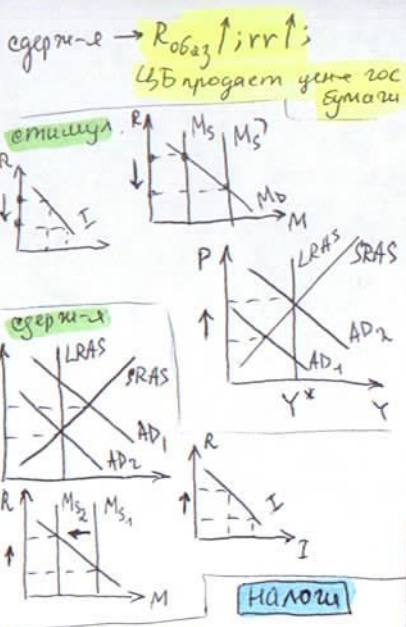 сдерж-я → Rобяз↑; rr↑;
ЦБ продает ценн гос
бумаги
стимул.
R
I
R
Ms
Ms'
MD
M
P
LRAS
SRAS
AD2
AD1
Y*
Y
сдерж-я
LRAS
SRAS
AD1
AD2
R
Ms2
Ms1
M
R
I
I
налоги